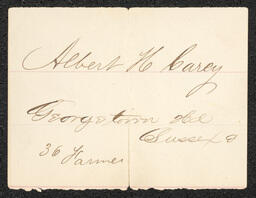 Albert H Carey
Georgetown Del
Sussex
36 Farmer